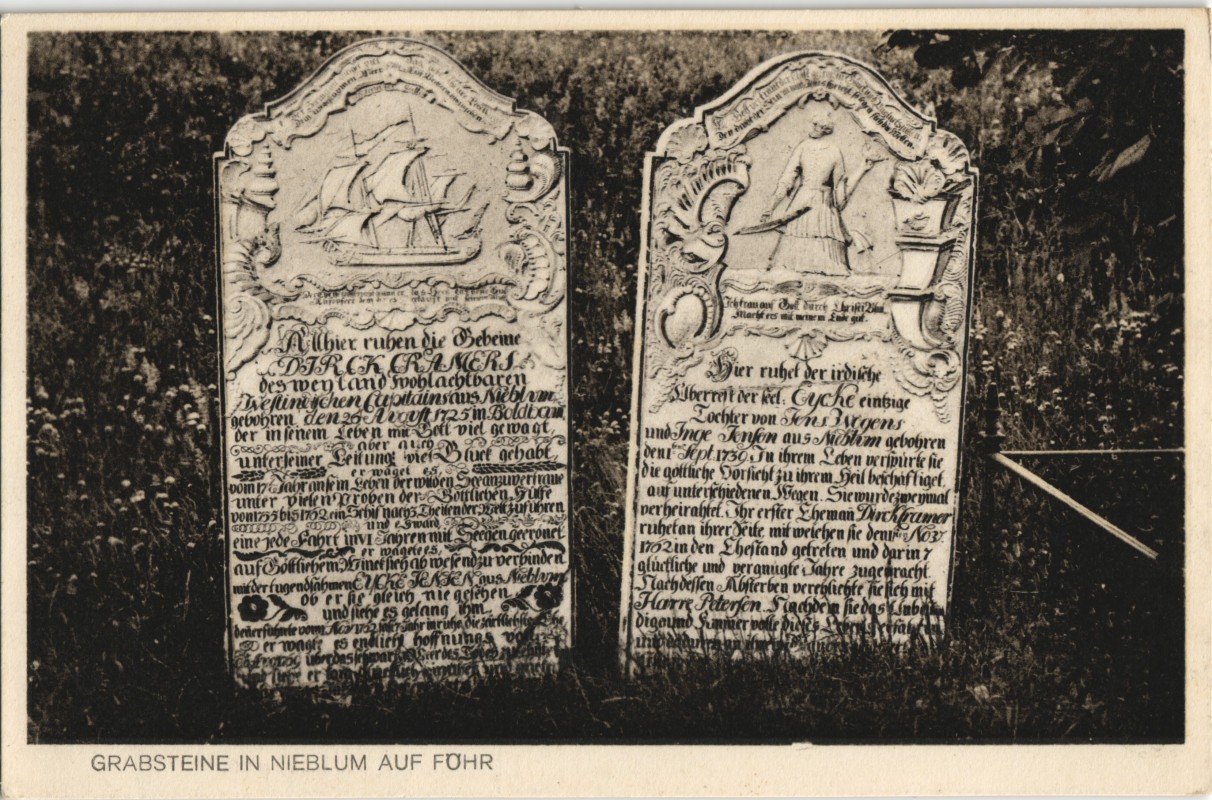 Allhier ruhen die Gebeine
DIRCK CRAMERS
des weyland wohlachtbaren
Capitains aus Nieblum
gebohren den 25 Aug̅ust 1725 in Boldixum
der in seinem Leben mit Gott viel gewagt,
aber auch
unter seiner Leitung viel Glück gehabt,
er waget es,
vom 17 Jahr an sein Leben der wilden See anzuvertrauen
unter vielen Proben der Göttlichen Hülfe
von 1755 bis 1762 ein Schif nach 3 Theilen der Welt zu führen
und es ward
eine jede Fahrt in VI Jahren mit Seegen gecrönet
er wagete es,
auf Göttlichem Winck sich abwesend zu verbinden
mit der tugendsahmen EYCKE JENSEN aus Nieblum
ob er sie gleich nie gesehen
und siehe es gelang ihm.
er wagt es endlich hoffnungs voll
über das schwartze Meer des Todes
Ich trau auf Gott durch Christi Blut
Macht ers mit meinem Ende gut.
Hier ruhet der irdische
Überrest der seel. Eycke eintzige
Tochter von Jens Wögens
und Inge Jensen aus Nieblum gebohren
den 1 Sept 1736 In ihrem Leben verspürte sie
die göttliche Vorsicht zu ihrem Heil beschäftiget,
auf unterschiedenen Wegen. Sie wurde zweymal
verheirahtet. Ihr erster Eheman Dirck Cramer
ruhet an ihrer Seite mit welchen sie den 1 Nov.
1762 in den Ehestand getreten und darin 7
glückliche und vergnügte Jahre zugebracht
Nach dessen Absterben verehlichte sie sich mit
Harre Petersen. Nachdem sie das Unbestän
dige und Kummer volle dieses Lebens erfahren
GRABSTEINE IN NIEBLUM AUF FÖHR